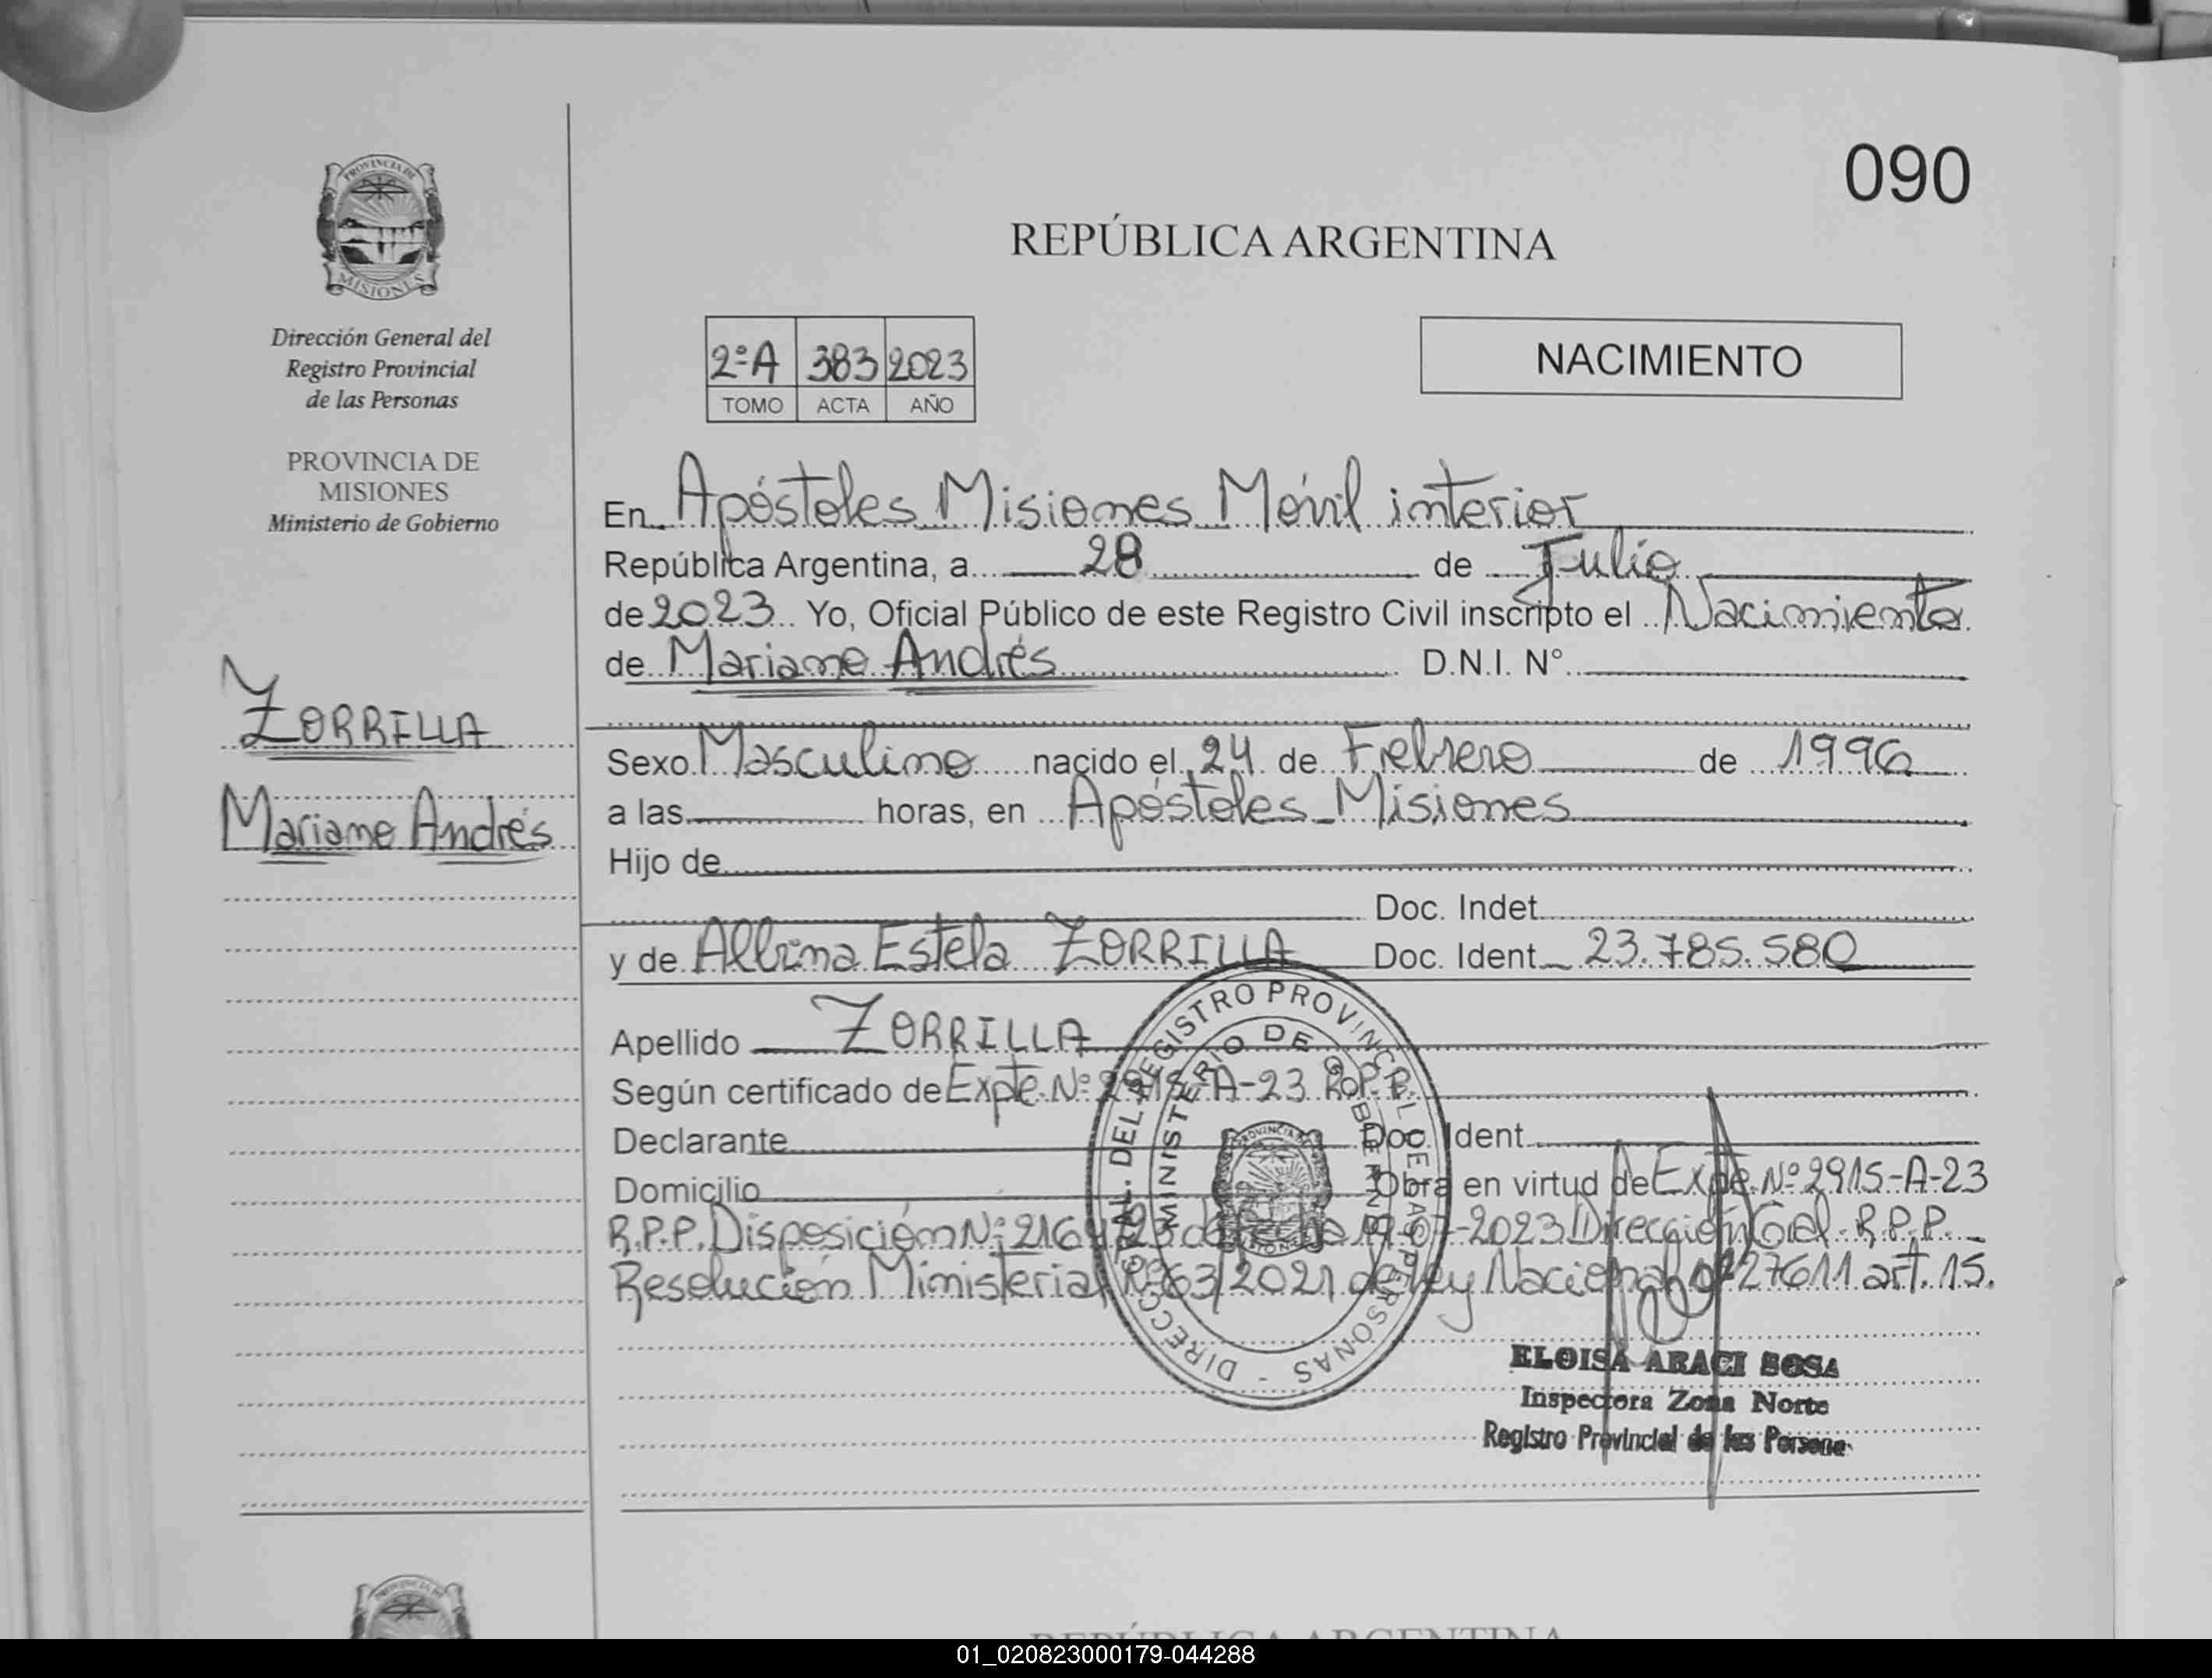 090
PROVINCIA DE
MISIONES
REPÚBLICA ARGENTINA
Dirección General del
Registro Provincial
de las Personas
PROVINCIA DE
MISIONES
Ministerio de Gobierno
2ºA 383 2023
TOMO ACTA AÑO
NACIMIENTO
En Apóstoles Misiones Móvil interior
República Argentina, a 28 de Julio
de 2023 Yo, Oficial Público de este Registro Civil inscripto el Nacimiento
de Mariano Andrés D.N.I. Nº
ZORRILLA
Mariano Andrés
Sexo Masculino nacido el 24 de Febrero de 1996
a las horas, en Apóstoles - Misiones
Hijo de
Doc. Indet
y de Albina Estela ZORRILLA Doc. Ident 23.785.580
Apellido ZORRILLA
Según certificado de Expte. Nº 2915-A-23 R.P.P.
Declarante Doc. Ident
Domicilio Obra en virtud de Expte. Nº 2915-A-23
R.P.P. Disposición Nº 2164/23 de fecha 19-07-2023 Dirección Gral. R.P.P.
Resolución Ministerial Nº 63/2021 de ley Nacional Nº 27611 art. 15.
DIRECC. GRAL. DEL REGISTRO PROVINCIAL DE LAS PERSONAS -
MINISTERIO DE GOBIERNO
ELOISA ARACI SOSA
Inspectora Zona Norte
Registro Provincial de las Persona
REPÚBLICA ARGENTINA
01_020823000179-044288